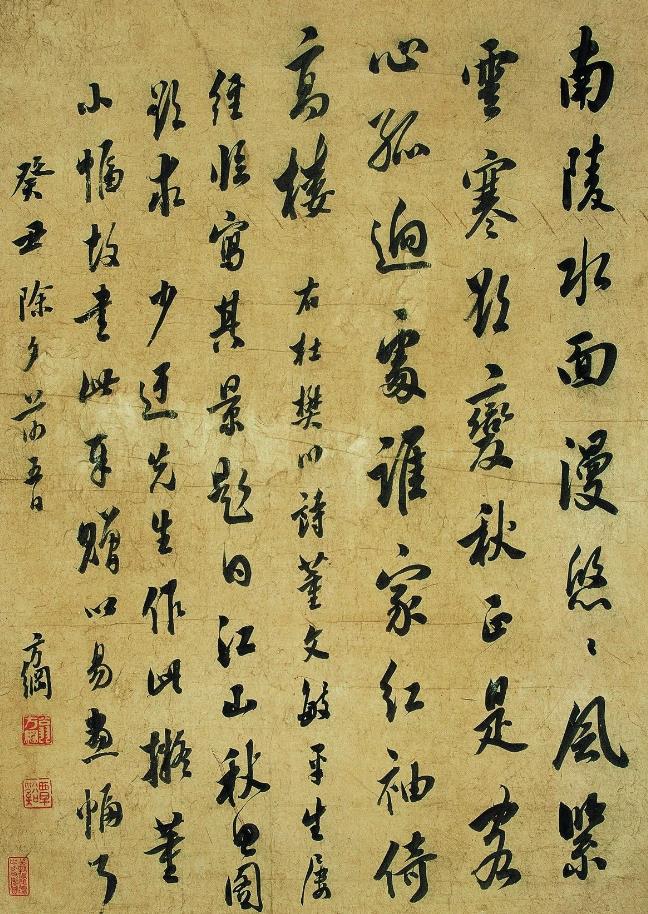 南陵水面漫悠〻風緊
雲寒欲變秋正是客
心孤迥處誰家紅袖倚
高樓 右杜樊川詩董文敏平生屢
經臨寫其景題曰江山秋思圖
欲求 少迂先生作此擬董
小幅故書此奉贈以易畫幅
癸丑除夕前五日 方綱